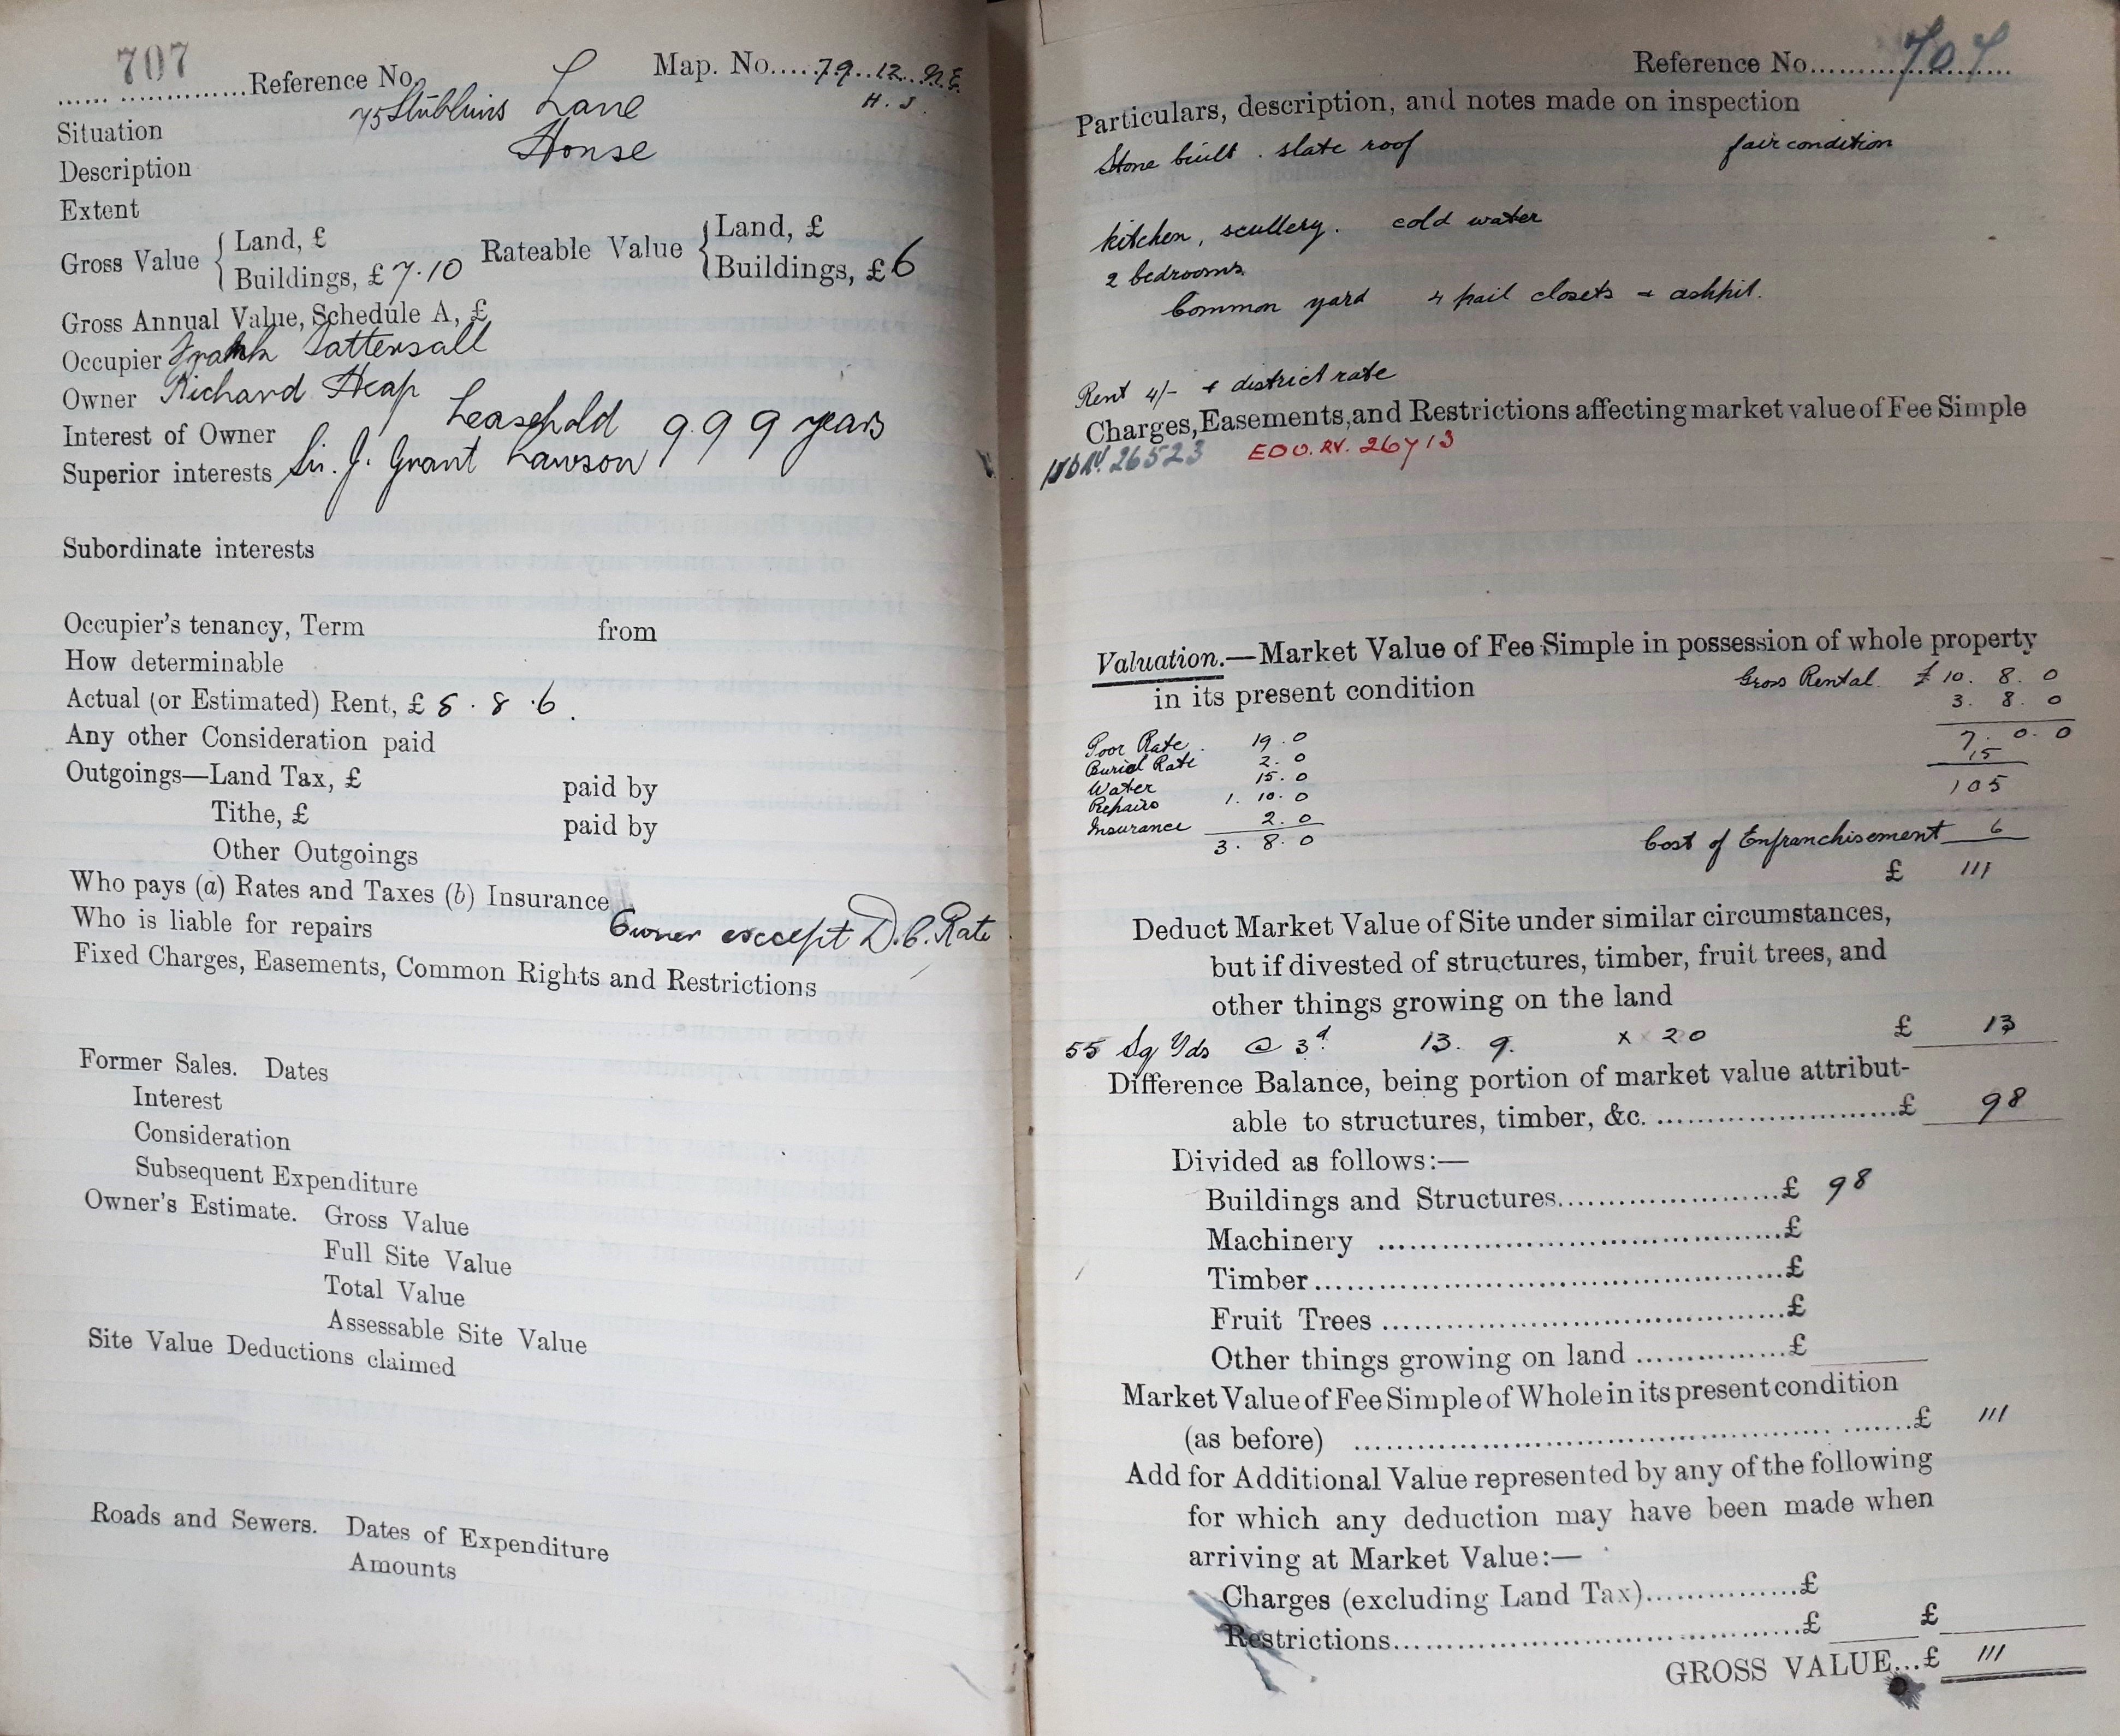 707
Reference No. Map. No. 79.12. N.E.
H. J.
Situation 75 Stubbins Lane
Description House
Extent
Gross Value { Land, £
Buildings, £ 7.10
Rateable Value { Land, £
Buildings, £ 6
Gross Annual Value, Schedule A, £
Occupier Frank Tattersall
Owner Richard Heap
Interest of Owner Leasehold 999 years
Superior interests Sir. J. Grant Lawson
Subordinate interests
Occupier's tenancy, Term from
How determinable
Actual (or Estimated) Rent, £ 8.8.6.
Any other Consideration paid
Outgoings—Land Tax, £ paid by
Tithe, £ paid by
Other Outgoings
Who pays (a) Rates and Taxes (b) Insurance
Who is liable for repairs Owner except D.C. Rate
Fixed Charges, Easements, Common Rights and Restrictions
Former Sales. Dates
Interest
Consideration
Subsequent Expenditure
Owner's Estimate. Gross Value
Full Site Value
Total Value
Assessable Site Value
Site Value Deductions claimed
Roads and Sewers. Dates of Expenditure
Amounts
Reference No. 707
Particulars, description, and notes made on inspection
Stone built. slate roof fair condition
kitchen, scullery. cold water
2 bedrooms.
Common yard 4 pail closets + ashpit.
Rent 4/- + district rate
Charges, Easements, and Restrictions affecting market value of Fee Simple
26523 26713
Valuation.—Market Value of Fee Simple in possession of whole property
in its present condition Gross Rental £ 10. 8. 0
3. 8. 0
7. 0. 0
15
105
Poor Rate. 19.0
Burial Rate 2.0
Water 15.0
Repairs 1. 10. 0
Insurance 2. 0
3. 8. 0
Cost of Enfranchisement 6
£ 111
Deduct Market Value of Site under similar circumstances,
but if divested of structures, timber, fruit trees, and
other things growing on the land
55 Sq Yds @ 3d. 13. 9. x 20 £ 13
Difference Balance, being portion of market value attribut-
able to structures, timber, &c. £ 98
Divided as follows:—
Buildings and Structures £ 98
Machinery £
Timber £
Fruit Trees £
Other things growing on land £
Market Value of Fee Simple of Whole in its present condition
(as before) £ 111
Add for Additional Value represented by any of the following
for which any deduction may have been made when
arriving at Market Value:—
Charges (excluding Land Tax) £
Restrictions £ £
GROSS VALUE...£ 111